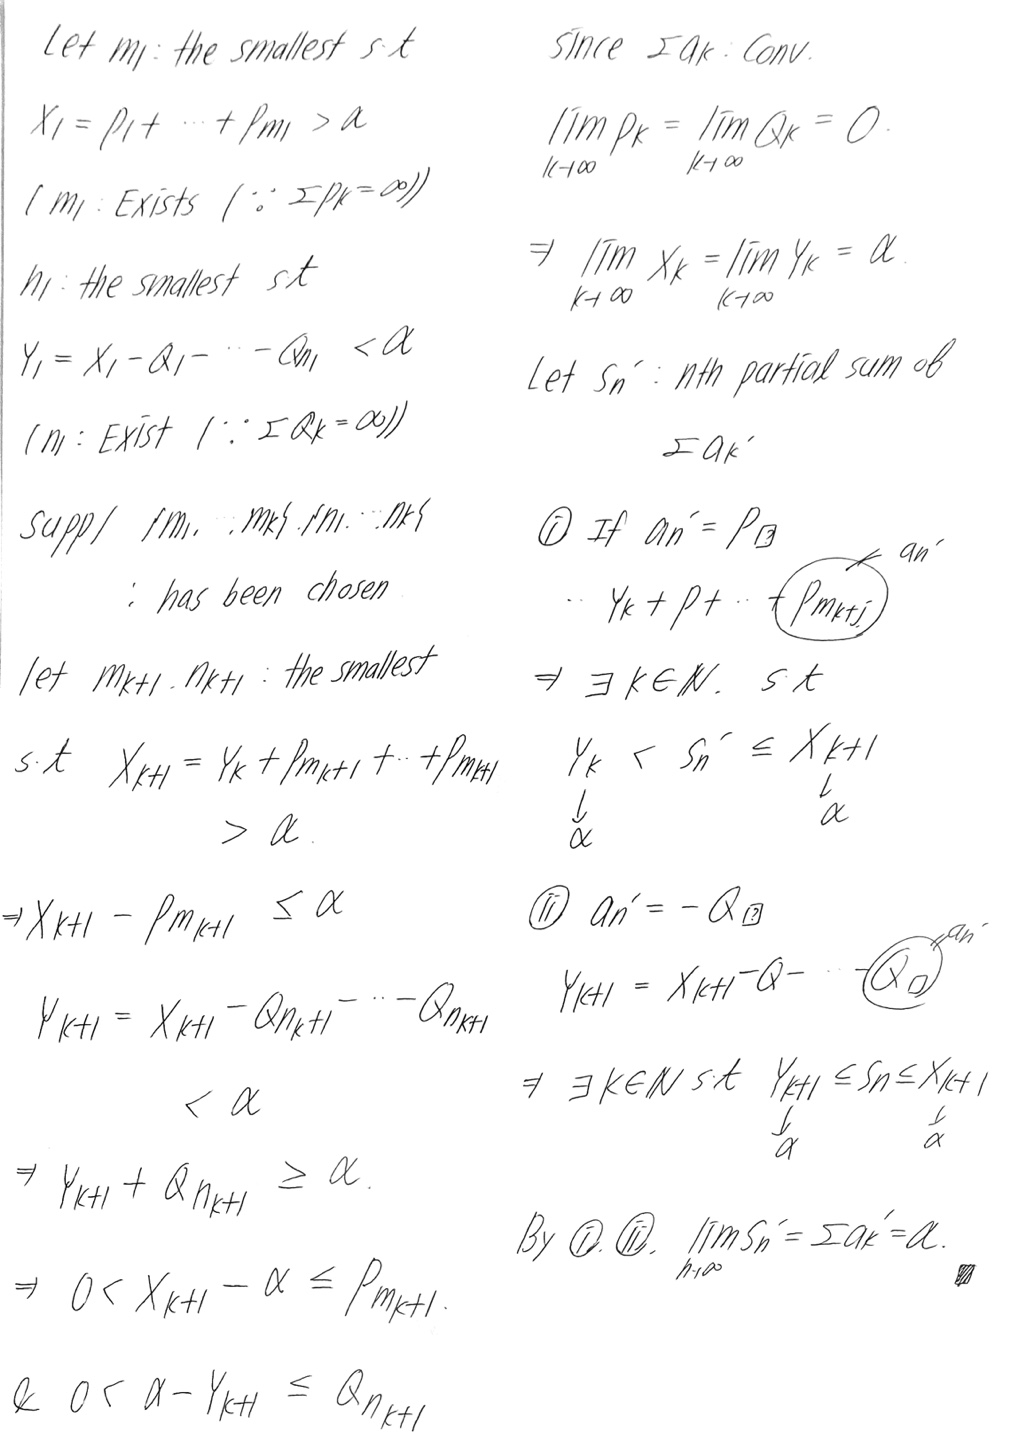 Let m₁ : the smallest s.t
X₁ = p₁ + ⋯ + pm₁ > α
(m₁ : Exists (∵ Σpₖ = ∞))
n₁ : the smallest s.t
Y₁ = X₁ - Q₁ - ⋯ - Qn₁ < α
(n₁ : Exist (∵ ΣQₖ = ∞))
supp/ {m₁. ⋯ mₖ}. {n₁. ⋯ nₖ}
: has been chosen
let mₖ₊₁. nₖ₊₁ : the smallest
s.t Xₖ₊₁ = Yₖ + pmₖ+1 + ⋯ + pmₖ₊₁
> α.
⇒ Xₖ₊₁ - pmₖ₊₁ ≤ α
Yₖ₊₁ = Xₖ₊₁ - Qnₖ+1 - ⋯ - Qnₖ₊₁
< α
⇒ Yₖ₊₁ + Qnₖ₊₁ ≥ α.
⇒ 0 < Xₖ₊₁ - α ≤ pmₖ₊₁.
& 0 < α - Yₖ₊₁ ≤ Qnₖ₊₁
since Σaₖ : Conv.
lim pₖ = lim Qₖ = 0.
k→∞ k→∞
⇒ lim Xₖ = lim Yₖ = α.
k→∞ k→∞
Let Sn′ : nth partial sum of
Σaₖ′
ⓘ If an′ = p?
an′
⋯ Yₖ + p + ⋯ + pmₖ+j.
⇒ ∃k∈ℕ. s.t
Yₖ < Sn′ ≤ Xₖ₊₁
↓ ↓
α α
ⓘⓘ an′ = -Q?
an′
Yₖ₊₁ = Xₖ₊₁ - Q - ⋯ - Q□
⇒ ∃k∈ℕ s.t Yₖ₊₁ ≤ Sn ≤ Xₖ₊₁
↓ ↓
α α
By ⓘ. ⓘⓘ. lim Sn′ = Σaₖ′ = α.
n→∞